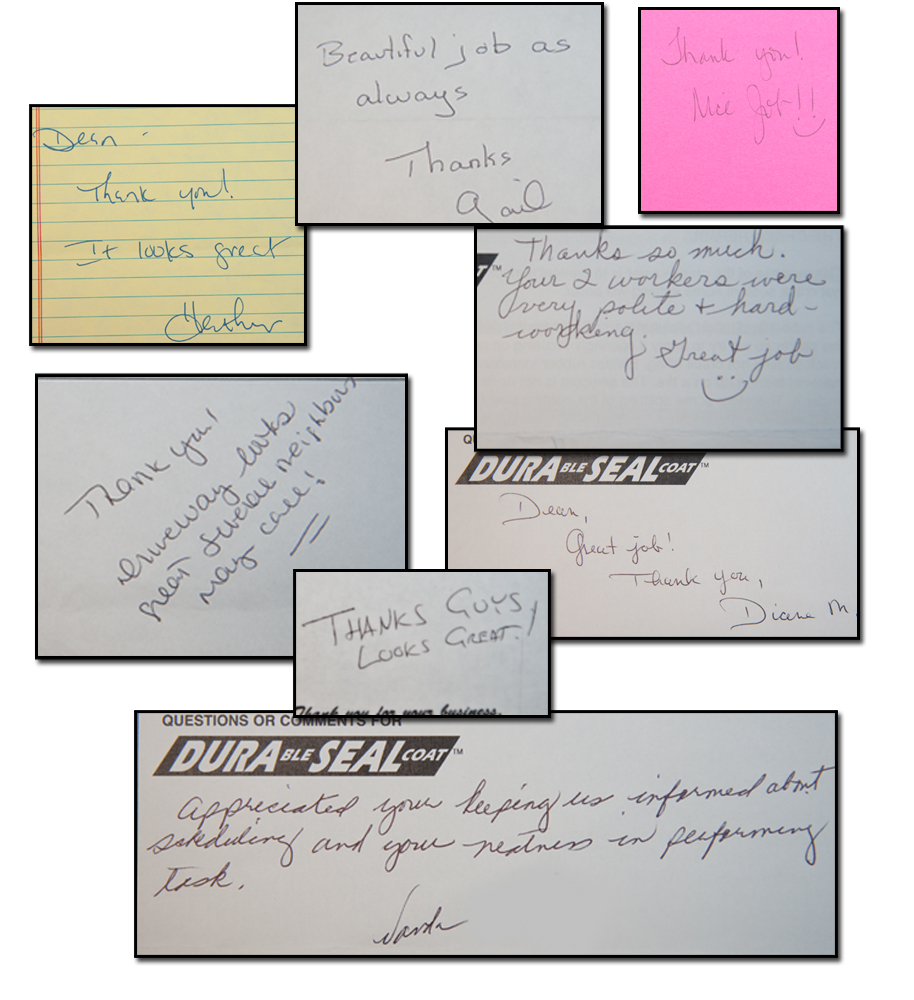 Beautiful job as
always
Thanks
Gail
Thank you!
Nice Job!!
Dean -
Thank you!
It looks great
Heather
TM
Thanks so much.
Your 2 workers were
very polite + hard-
working.
Great job
Thank you!
Driveway looks
great several neighbors
may call!
DURABLE SEALCOAT™
Dean,
Great job!
Thank you,
Diane M.
THANKS GUYS,
LOOKS GREAT!
Thank you for your business.
QUESTIONS OR COMMENTS FOR
DURABLE SEALCOAT™
Appreciated your keeping us informed about
scheduling and your neatness in performing
task.